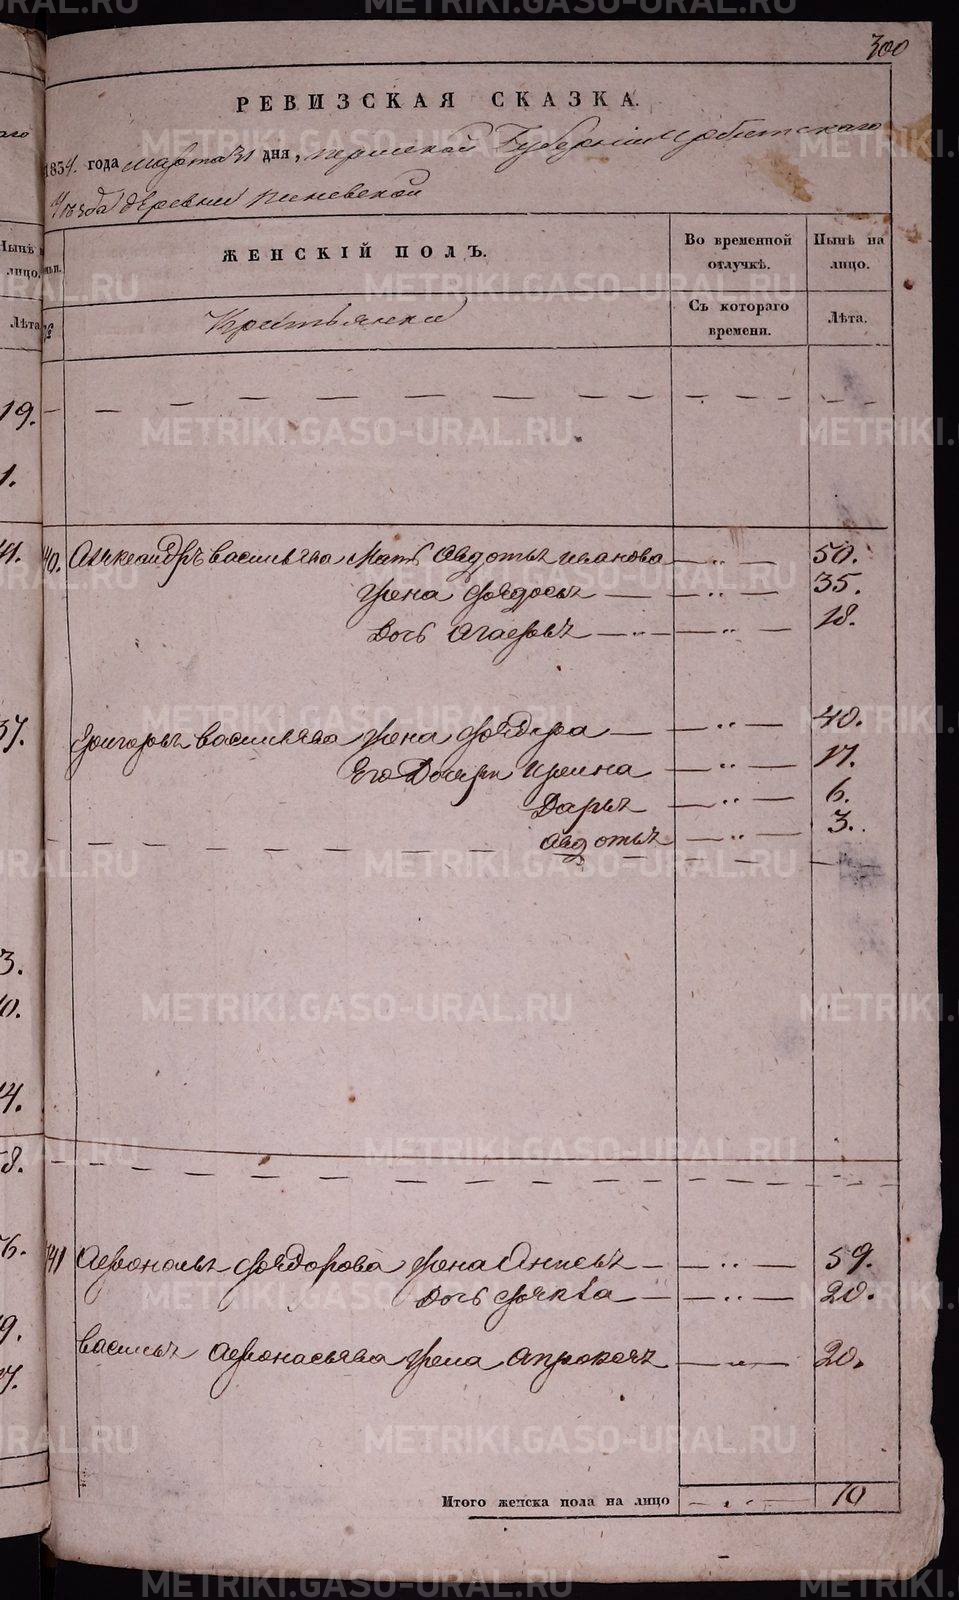 300
РЕВИЗСКАЯ СКАЗКА.
1834. года марта 31 дня, пермской Губернии Ирбитскаго
уезда деревни
ЖЕНСКІЙ ПОЛЪ.
Во временной отлучкѣ.
Нынѣ на лицо.
Нынѣ
лицо.
Крестьянки
Съ котораго времени.
Лѣта.
Лѣта
19.
1.
40. Александръ васильева Мать Авдотья иванова — „ — 50.
жена Федосья — „ — 35.
дочь Агафья — „ — 18.
37. Григорья васильева жена Федора — „ — 40.
Его Дочери Ирина — „ — 17.
Дарья — „ — 6.
Авдотья — „ — 3.
3.
0.
4.
8.
6. 41 Афонасья Федорова жена Анисья — „ — 59.
дочь Фекла — „ — 20.
9. василья Афонасьева жена — „ — 20.
7.
Итого женска пола на лицо — „ — 10
METRIKI.GASO-URAL.RU